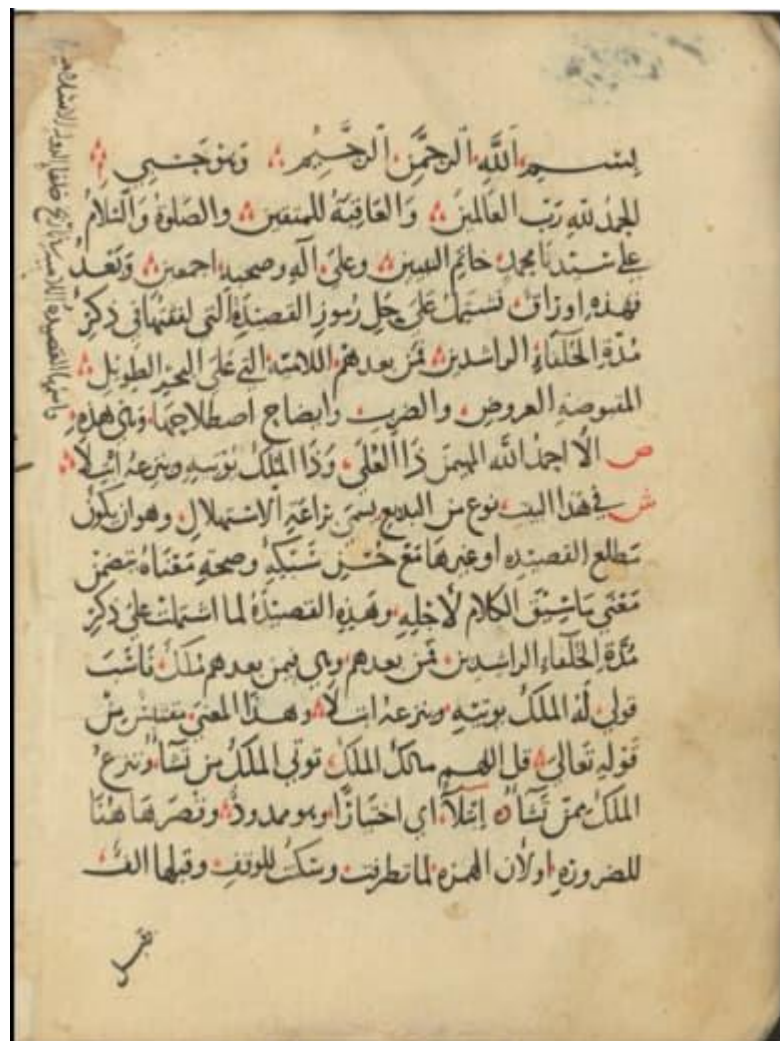 بسم الله الرحمن الرحيم وهو حسبي
الحمد لله رب العالمين والعاقبة للمتقين والصلوة والسلام
على سيدنا محمد خاتم النبيين وعلى آله وصحبه اجمعين وبعد
فهذه اوراق تشتمل على حل رموز القصيدة التي لفقتها في ذكر
مدة الخلفاء الراشدين فمن بعدهم اللامية التي على البحر الطويل
المقبوضة العروض والضرب وايضاح اصطلاحها وهي هذه
ص الا احمد الله المهيمن ذا العلى وذا الملك يوتيه وينزعه ابتلا
ش في هذا البيت نوع من البديع يسمى براعة الاستهلال وهو ان يكون
مطلع القصيده او غيرها مع حسن سبكه وصحة معناه يتضمن
معنى ما سيق الكلام لاجله وهذه القصيدة لما اشتملت على ذكر
مدة الخلفاء الراشدين فمن بعدهم وهي فيمن بعدهم ملك ناسب
قولي له الملك يوتيه وينزعه ابتلا وهذا المعنى مقتبس من
قوله تعالى قل اللهم مالك الملك توتي الملك من تشاء وتنزع
الملك ممن تشاء ابتلاء اي اختبارا وهو ممدود وقصرها هنا
للضرورة اولان الهمزه لما تطرفت وسكنت للوقف وقبلها الف
القصيدة اللامية تاريخ خلفا الدولة الاسلامية